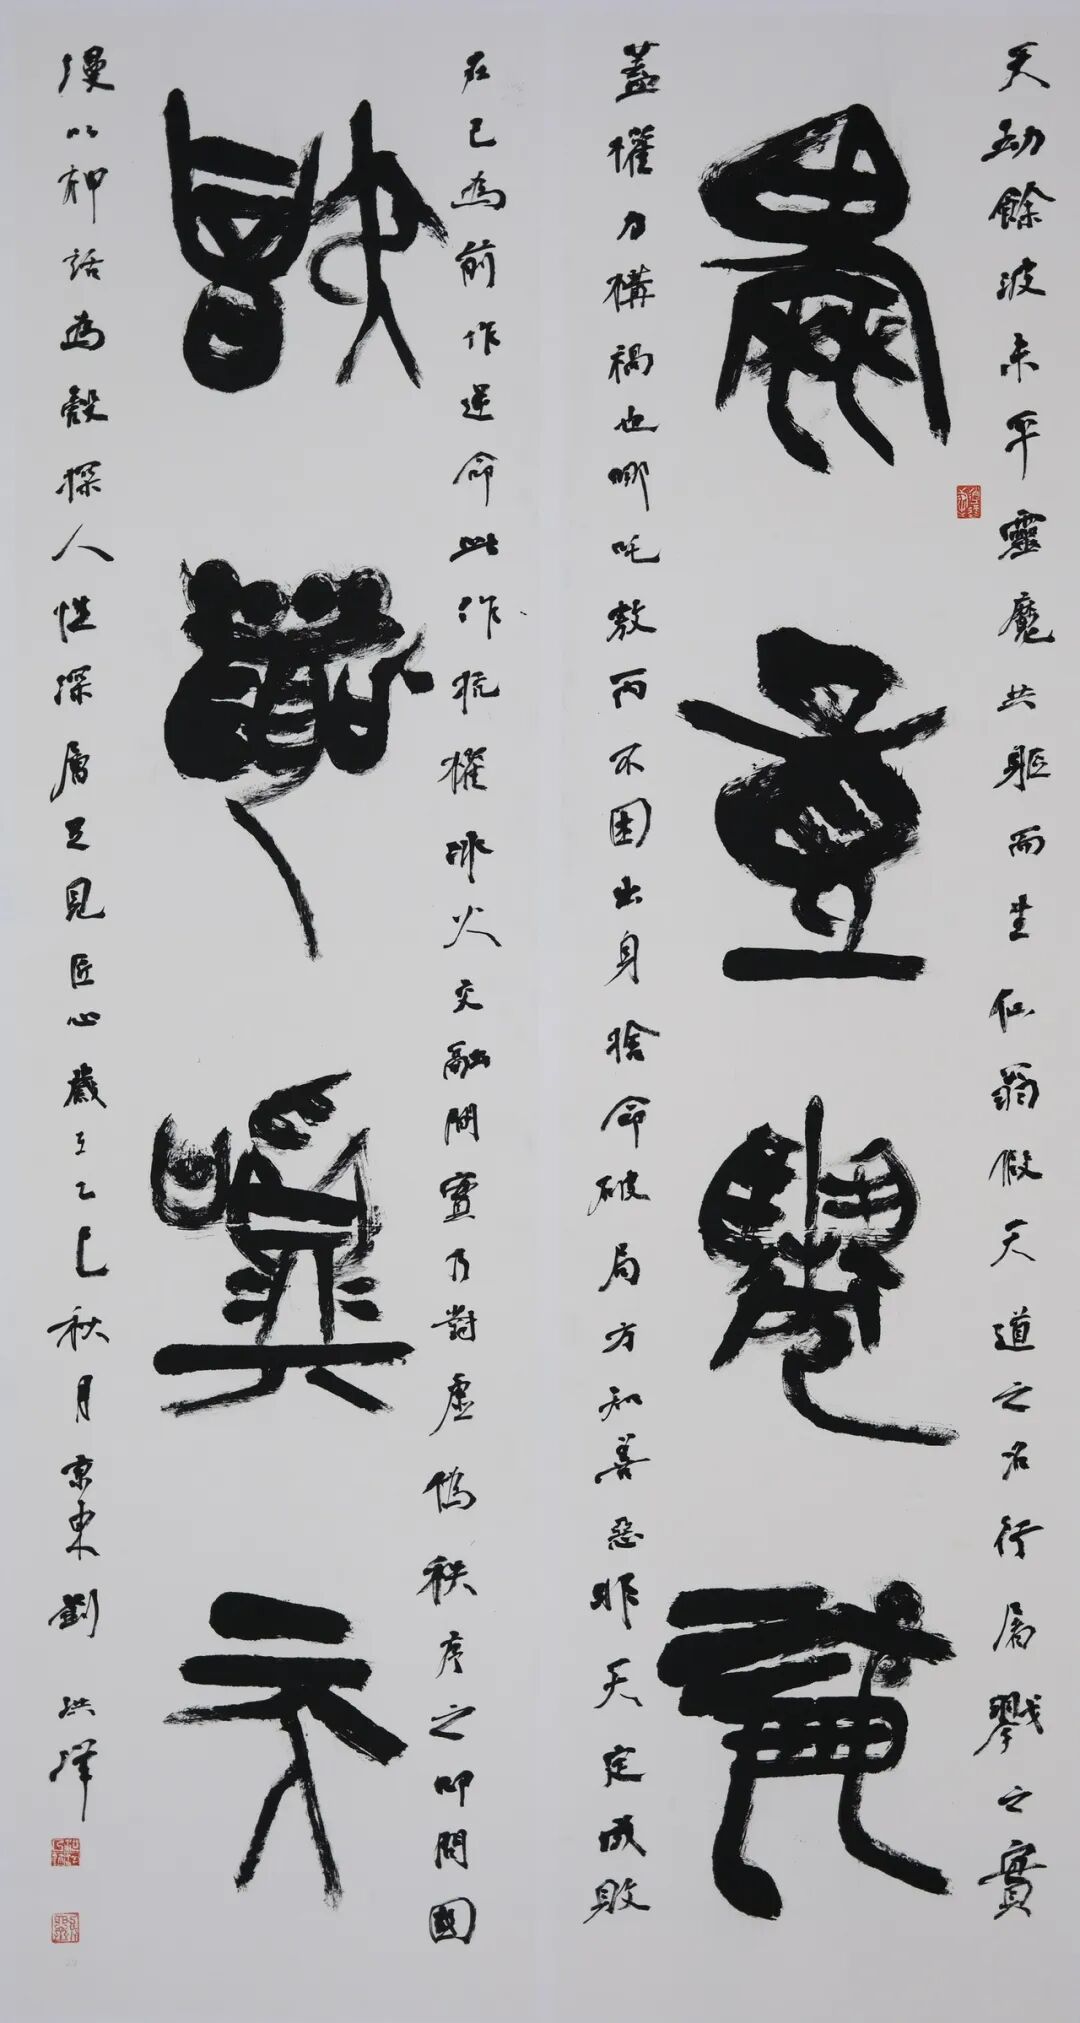 天劫餘波未平靈魔共軀而生仙翁假天道之名行屠戮之實
童
蓋權力構禍也哪吒敖丙不困出身捨命破局方知善惡非天定成敗
在己為前作逆命此作抗權冰火交融間實乃對虛偽秩序之叩問國
漫以神話為殼探人性深層足見匠心歲在乙巳秋月京東劉洪澤